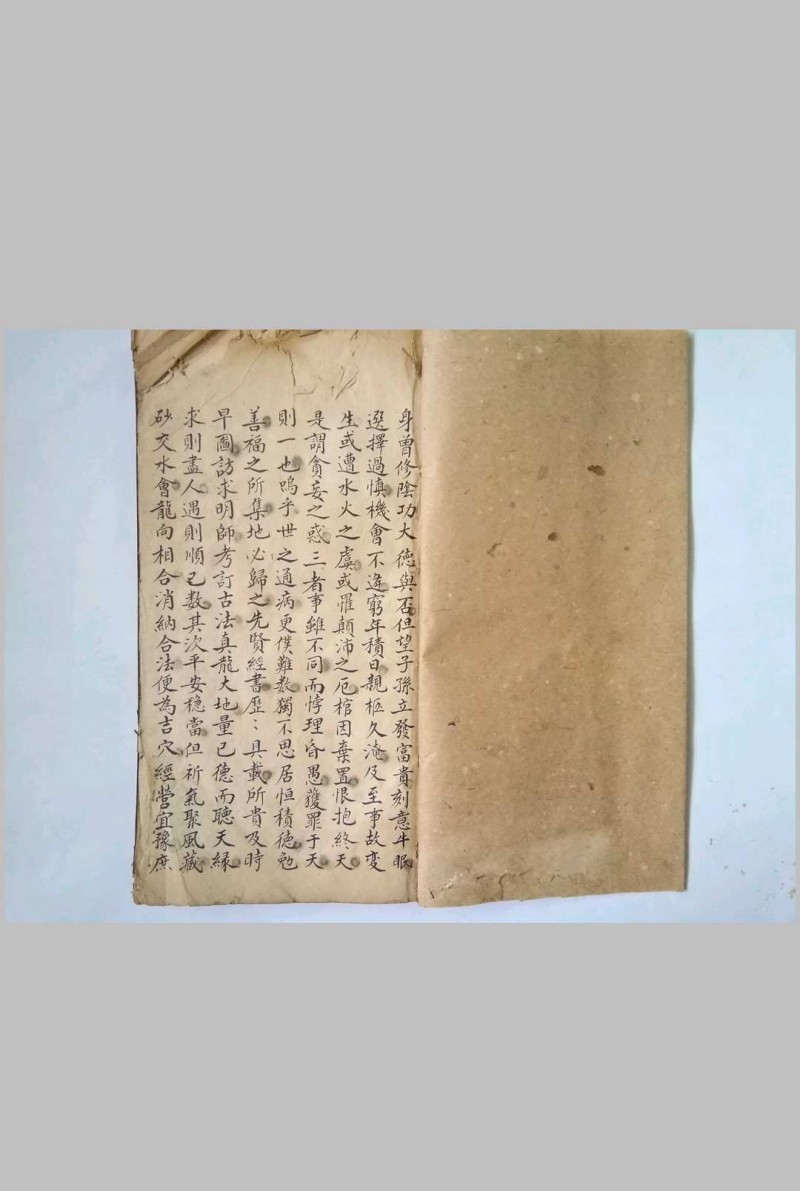 身曾修陰功大德與否但望子孫立發富貴刻意牛眠
選擇過慎機會不逢窮年積日親柩久淹及至事故变
生或遭水火之虞或罹顛沛之厄棺因棄置恨抱終天
是謂貪妄之惑三者事雖不同而悖理昏愚獲罪于天
則一也嗚乎世之通病更僕難数獨不思居恒積德勉
善福之所集地必歸之先賢經書歷〻具載所貴及時
早圖訪求明師考訂古法真龍大地量已德而聽天緣
求則盡人遇則順已数其次平安穩當但祈氣聚風藏
砂交水會龍向相合消納合法便為吉穴經營宜豫庶